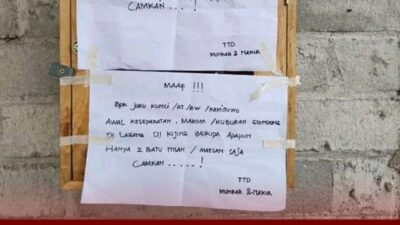 CAMKAN ..... !
TTD
MUNKAR & NAKIR
MAAF !!!
BPK JURU KUNCI /RT /RW /KAMITUWO
AWAL KESEPAKATAN . MAKOM / KUBURAN GIONDANG
DI LARANG DI KIJING BERUPA APAPUN
HANYA 2 BATU NISAN / MAESAN SAJA
CAMKAN ..... !
TTD
MUNKAR & NAKIR